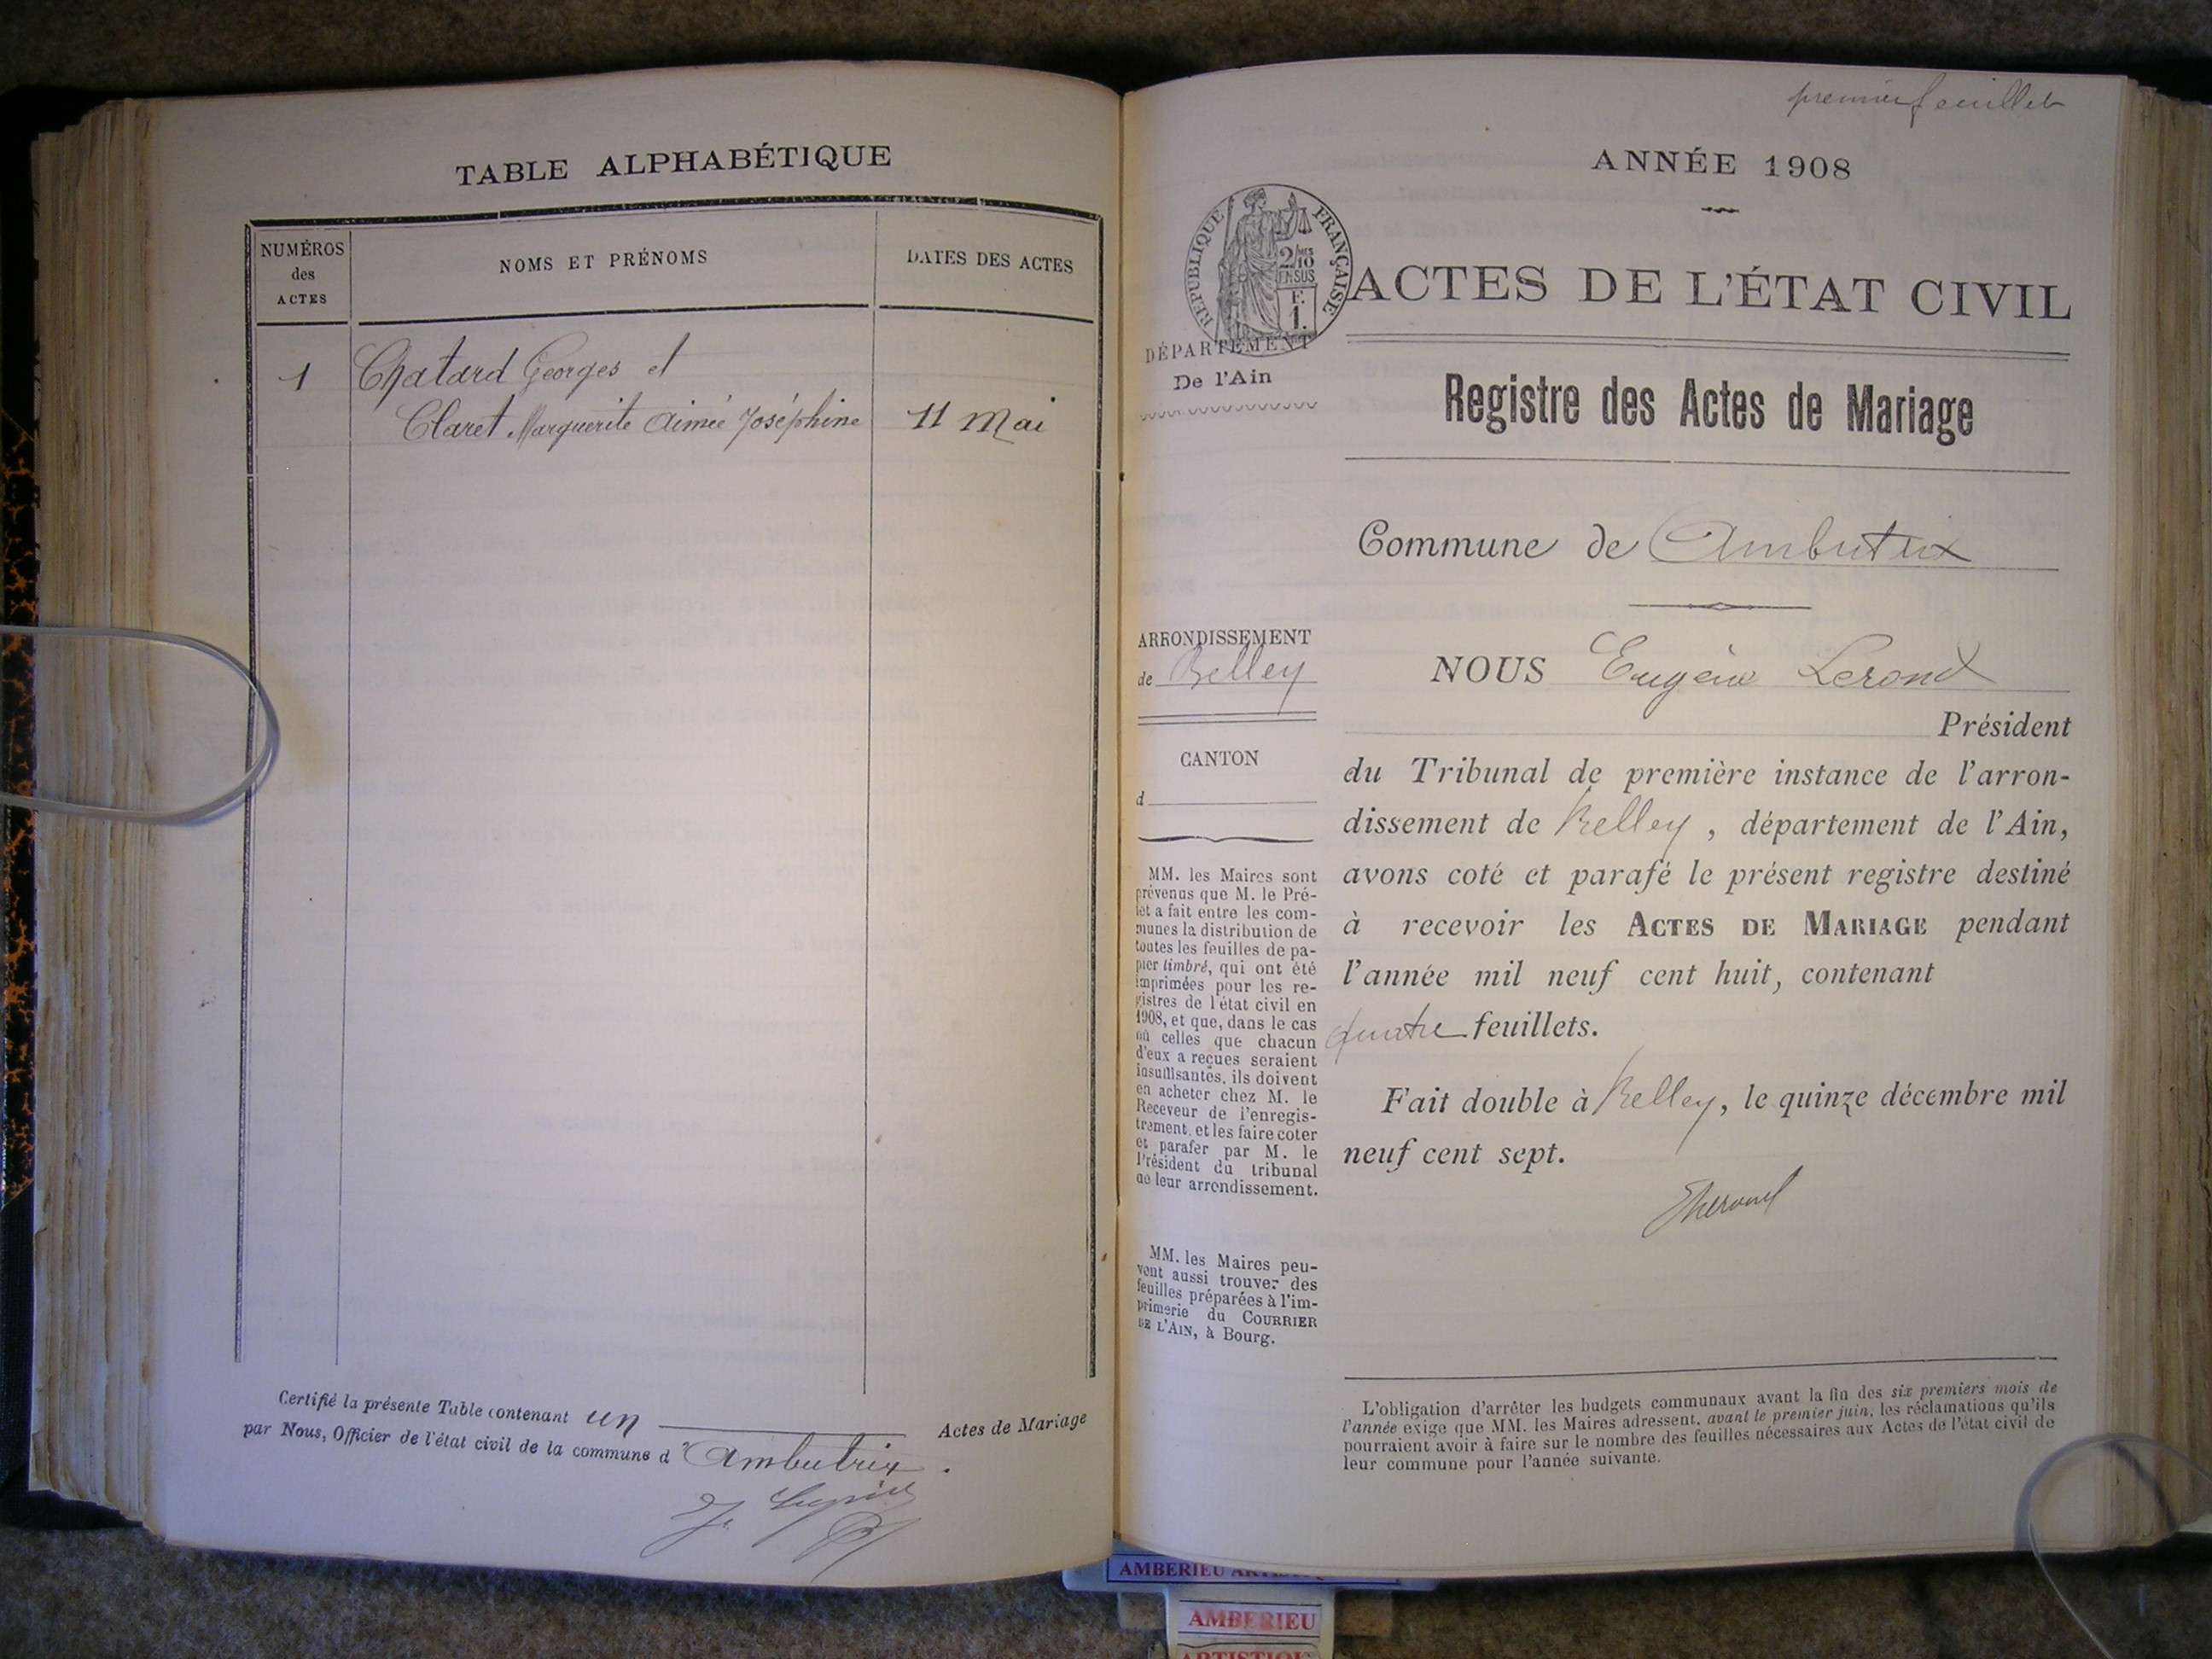 TABLE ALPHABÉTIQUE
NUMÉROS
des
ACTES
NOMS ET PRÉNOMS
DATES DES ACTES
1
Chatard Georges et
Claret Marguerite Aimée Joséphine
11 Mai
Certifié la présente Table contenant un Actes de Mariage
par Nous, Officier de l'état civil de la commune d'Ambutrix.
premier feuillet
ANNÉE 1908
RÉPUBLIQUE FRANÇAISE
2/10
EN SUS
F.
1.
ACTES DE L'ÉTAT CIVIL
DÉPARTEMENT
De l'Ain
Registre des Actes de Mariage
Commune de Ambutrix
ARRONDISSEMENT
de Belley
NOUS Eugène Lerond
Président
CANTON
d
du Tribunal de première instance de l'arron-
dissement de Belley, département de l'Ain,
avons coté et parafé le présent registre destiné
à recevoir les ACTES DE MARIAGE pendant
l'année mil neuf cent huit, contenant
quatre feuillets.
Fait double à Belley, le quinze décembre mil
neuf cent sept.
MM. les Maires sont
prévenus que M. le Pré-
fet a fait entre les com-
munes la distribution de
toutes les feuilles de pa-
pier timbré, qui ont été
imprimées pour les re-
gistres de l'état civil en
1908, et que, dans le cas
où celles que chacun
d'eux a reçues seraient
insuffisantes, ils doivent
en acheter chez M. le
Receveur de l'enregis-
trement, et les faire coter
et parafer par M. le
Président du tribunal
de leur arrondissement.
MM. les Maires peu-
vent aussi trouver des
feuilles préparées à l'im-
primerie du COURRIER
DE L'AIN, à Bourg.
L'obligation d'arrêter les budgets communaux avant la fin des six premiers mois de
l'année exige que MM. les Maires adressent, avant le premier juin, les réclamations qu'ils
pourraient avoir à faire sur le nombre des feuilles nécessaires aux Actes de l'état civil de
leur commune pour l'année suivante.
AMBERIEU
AMBERIEU
ARTISTIQUE